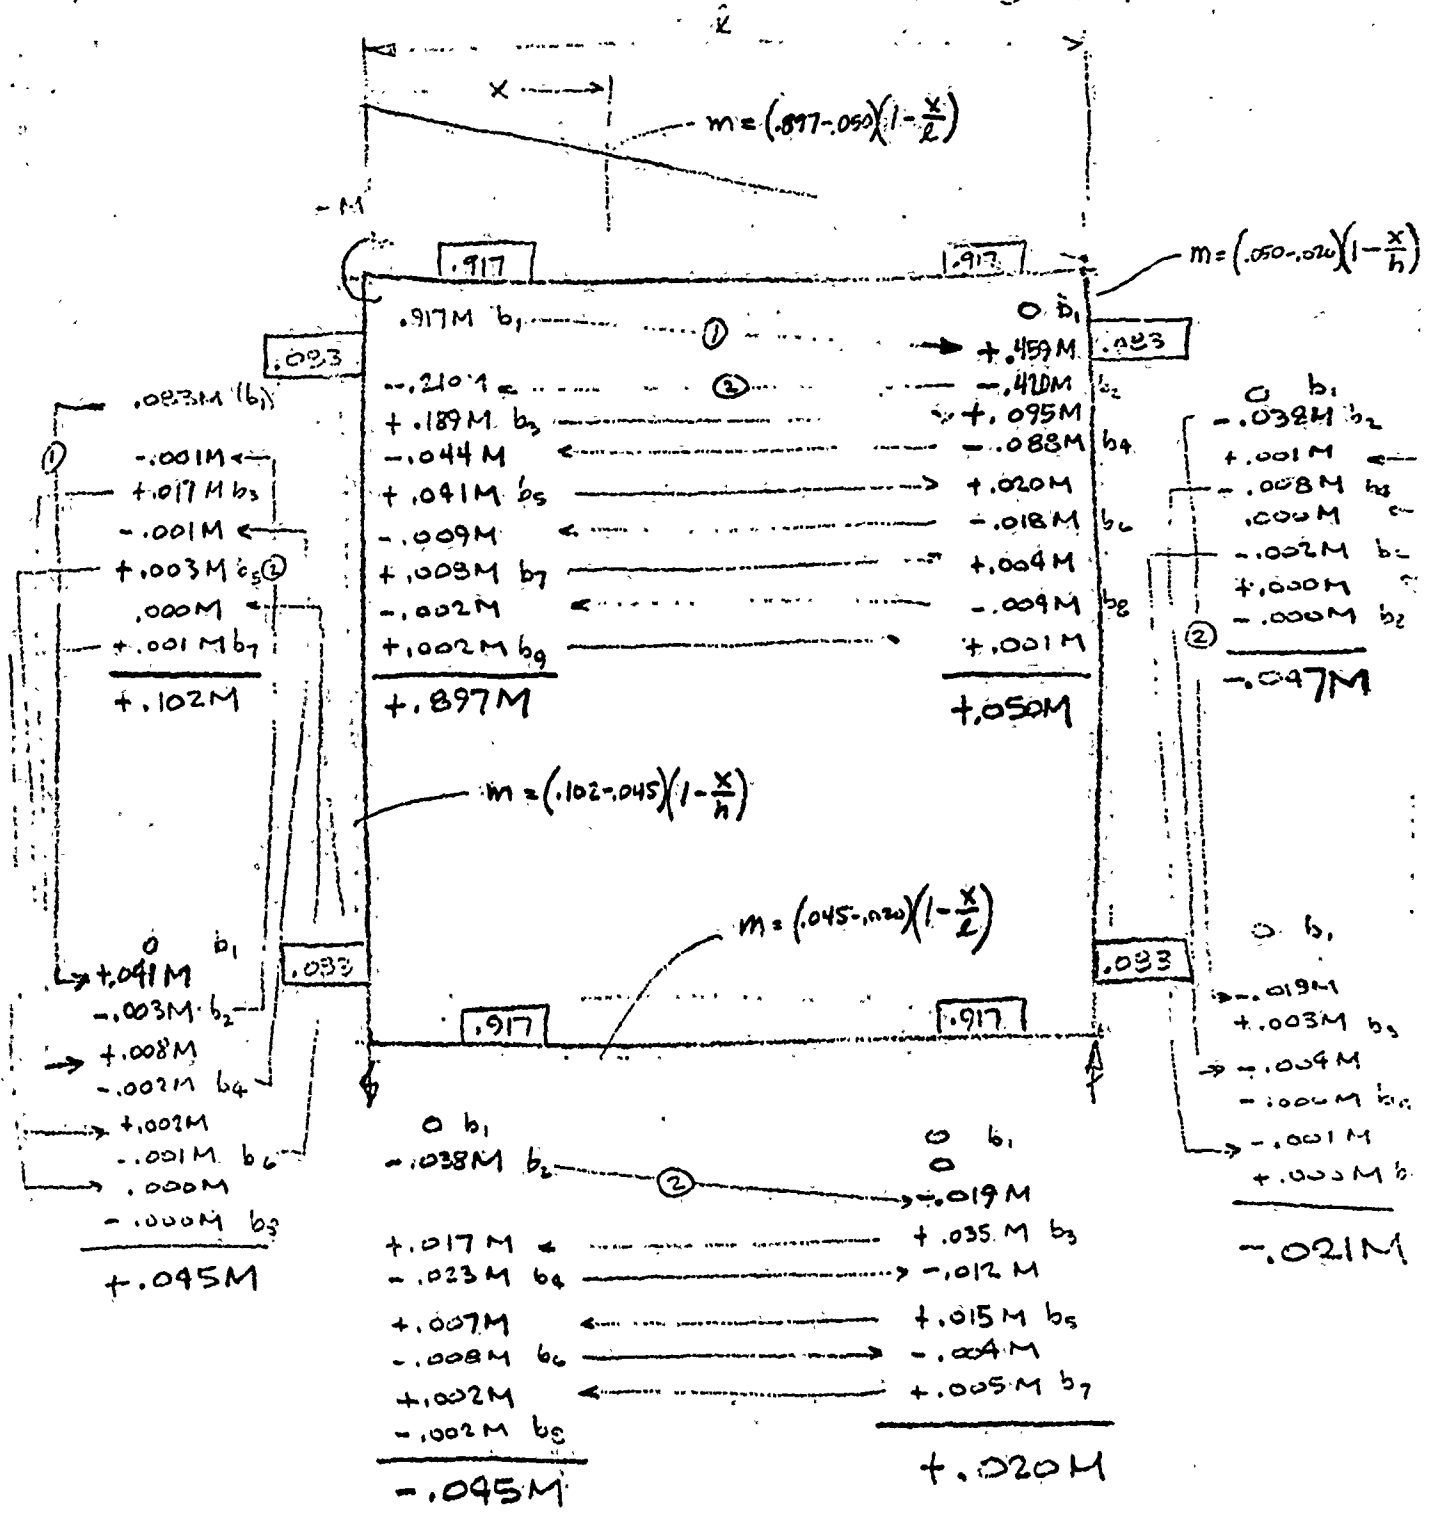 l
x
m = (.897-.050)(1-x/l)
-M
.917
.917
m = (.050-.020)(1-x/h)
.083
.083
.917M b1
①
0 b1
+.459M
-.210M
②
-.420M b2
+.189M b3
+.095M
-.044M
-.088M b4
+.041M b5
+.020M
-.009M
-.018M b6
+.008M b7
+.004M
-.002M
-.004M b8
+.002M b9
+.001M
+.897M
+.050M
.083M (b1)
①
-.001M
+.017M b3
-.001M
+.003M b5 ②
.000M
+.001M b7
+.102M
0 b1
-.038M b2
+.001M
-.008M
.000M
-.002M
+.000M
-.000M b2
②
-.047M
m = (.102-.045)(1-x/h)
m = (.045-.020)(1-x/l)
.083
.083
.917
.917
0 b1
+.041M
-.003M b2
+.008M
-.002M b4
+.002M
-.001M b6
.000M
-.000M b8
+.045M
0 b1
-.019M
+.003M b3
-.004M
-.000M
-.001M
+.000M b
-.021M
0 b1
-.038M b2
②
0 b1
0
-.019M
+.017M
+.035M b3
-.023M b4
-.012M
+.007M
+.015M b5
-.008M b6
-.004M
+.002M
+.005M b7
-.002M b8
-.045M
+.020M